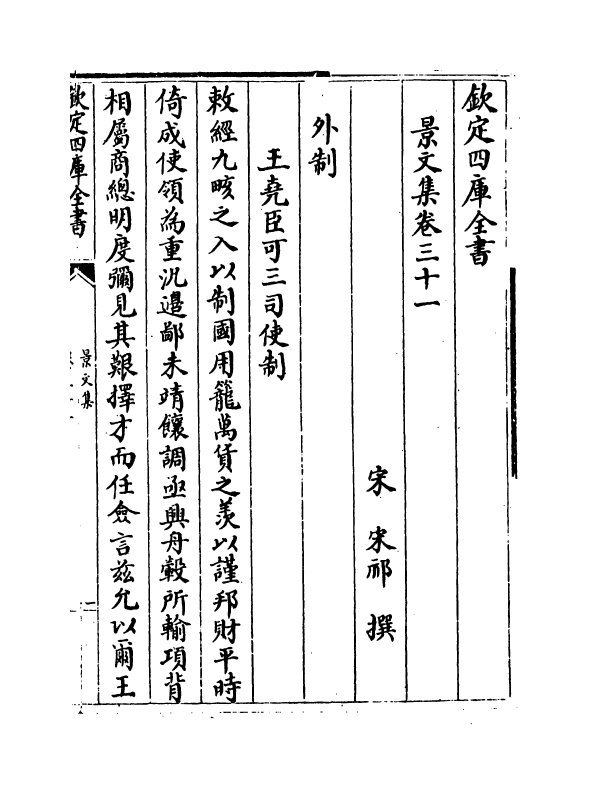 欽定四庫全書
景文集卷三十一
宋 宋祁 撰
外制
王堯臣可三司使制
敕經九畡之入以制國用籠萬貨之羨以謹邦財平時
倚成使領為重況邊鄙未靖饟調亟興舟轂所輸項背
相屬商總明度彌見其艱擇才而任僉言茲允以爾王
欽定四庫全書
景文集